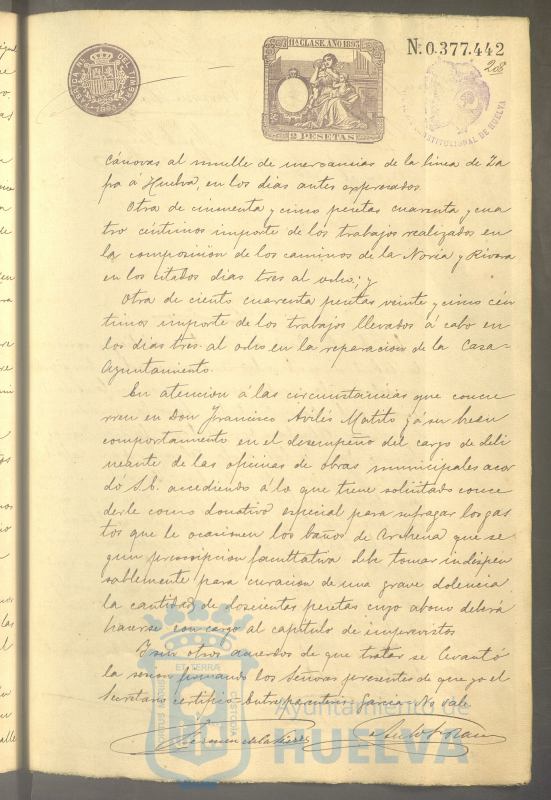 11ª CLASE AÑO 1893
2 PESETAS
N. 0.377.442
208
CONSTITUCIONAL DE HUELVA
Cánovas al muelle de mercancias de la linea de Za
fra á Huelva, en los dias antes expresados.
Otra de cincuenta y cinco pesetas cuarenta y cua
tro céntimos importe de los trabajos realizados en
la composicion de los caminos de la Noria y Rivera
en los citados dias tres al ocho; y
Otra de ciento cuarenta pesetas veinte y cinco cén
timos importe de los trabajos llevados á cabo en
los dias tres al ocho en la reparacion de la Casa-
Ayuntamiento.
En atencion á las circunstancias que concu
rren en Don Francisco Avilés Matito y á su buen
comportamiento en el desempeño del cargo de deli
neante de las oficinas de obras municipales acor
dó S.E. accediendo á lo que tiene solicitado conce
derle como donativo especial para sufragar los gas
tos que le ocasionen los baños de Archena que se
gun prescripcion facultativa debe tomar indispen
sablemente para curacion de una grave dolencia
la cantidad de doscientas pesetas cuyo abono deberá
hacerse con cargo al capitulo de imprevistos
Y sin otros acuerdos de que tratar se levantó
la sesion firmando los Señores presentes de que yo el
Secretario certifico. Entre parentesis = Garcia = No vale
Ayuntamiento de
HUELVA